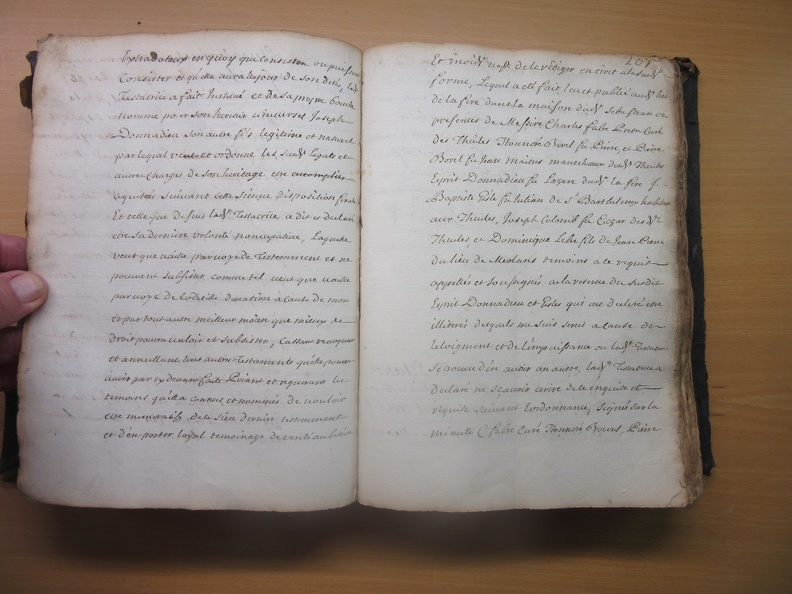 Extradotaux en quoy que consisten ou puissent
Consister et quelle aura le jour de son deces, lad.
Testatrice a fait Institué et de sa propre bouche
nommé pour son heritier universel Joseph
Donnadieu son autre fils legitime et naturel
par lequel veut et ordonne les susd. Legats et
autres Charges de son heritage etre accomplies
aquitées suivant cette sienne disposition finale
Et celle que dessus lad. Testatrice a dit et declaré
etre sa derniere volonté noncupative, Laquelle
veut que vaille par voye de Testemment et ne
pouvant subsister comme tel veut que vaille
par voye de Codicille donation a cause de mort
et par tout autre meilleur moien que mieux de
droit pourra valoir et subsister, Cassant revoquant
et annullant tous autres Testaments quelle pourroit
avoir par cy devant faits Priant et requerant les
temoins quelle a connus et nommés de vouloir
etre memoratifs de ce sien dernier testemment
et d'en porter loyal temoinage de verité
207
Et moid. no.re de le rediger en ecrit a la susd.
forme, Lequel a été fait leu et publié aud. lieu
de la fère dans la maison dud. Sebastian en
presences de Messire Charles fabre Pretre Curé
des Thuiles Honnoré Borel fu Pierre, et Pierre
Borel fu Jean maitres marechaux dud. Thuiles
Esprit Donnadieu fu Lazan dud. la fère J.
Baptiste Gilles fu Julian de S.t Barthelemy habitant
aux Thuiles, Joseph Colomb fu Cezar des d.
Thuiles et Dominique Lebre fils de Jean Pierre
du lieu de Meolans temoins a le requit
appellés et soussignés a la reserve dessusdit
Esprit Donnadieu et Gilles qui ont declaré etre
illiterés desquels me suis servis a cause de
leloigment et de l'impuissance ou lad. Testatrice
se trouve d'en avoir un autre, lad. Testatrice a
declaré ne sçavoir ecrire de ce enquise et
requise suivant lordonnance, Signés sur la
minute C fabre Curé Honnoré Bourel, Pierre